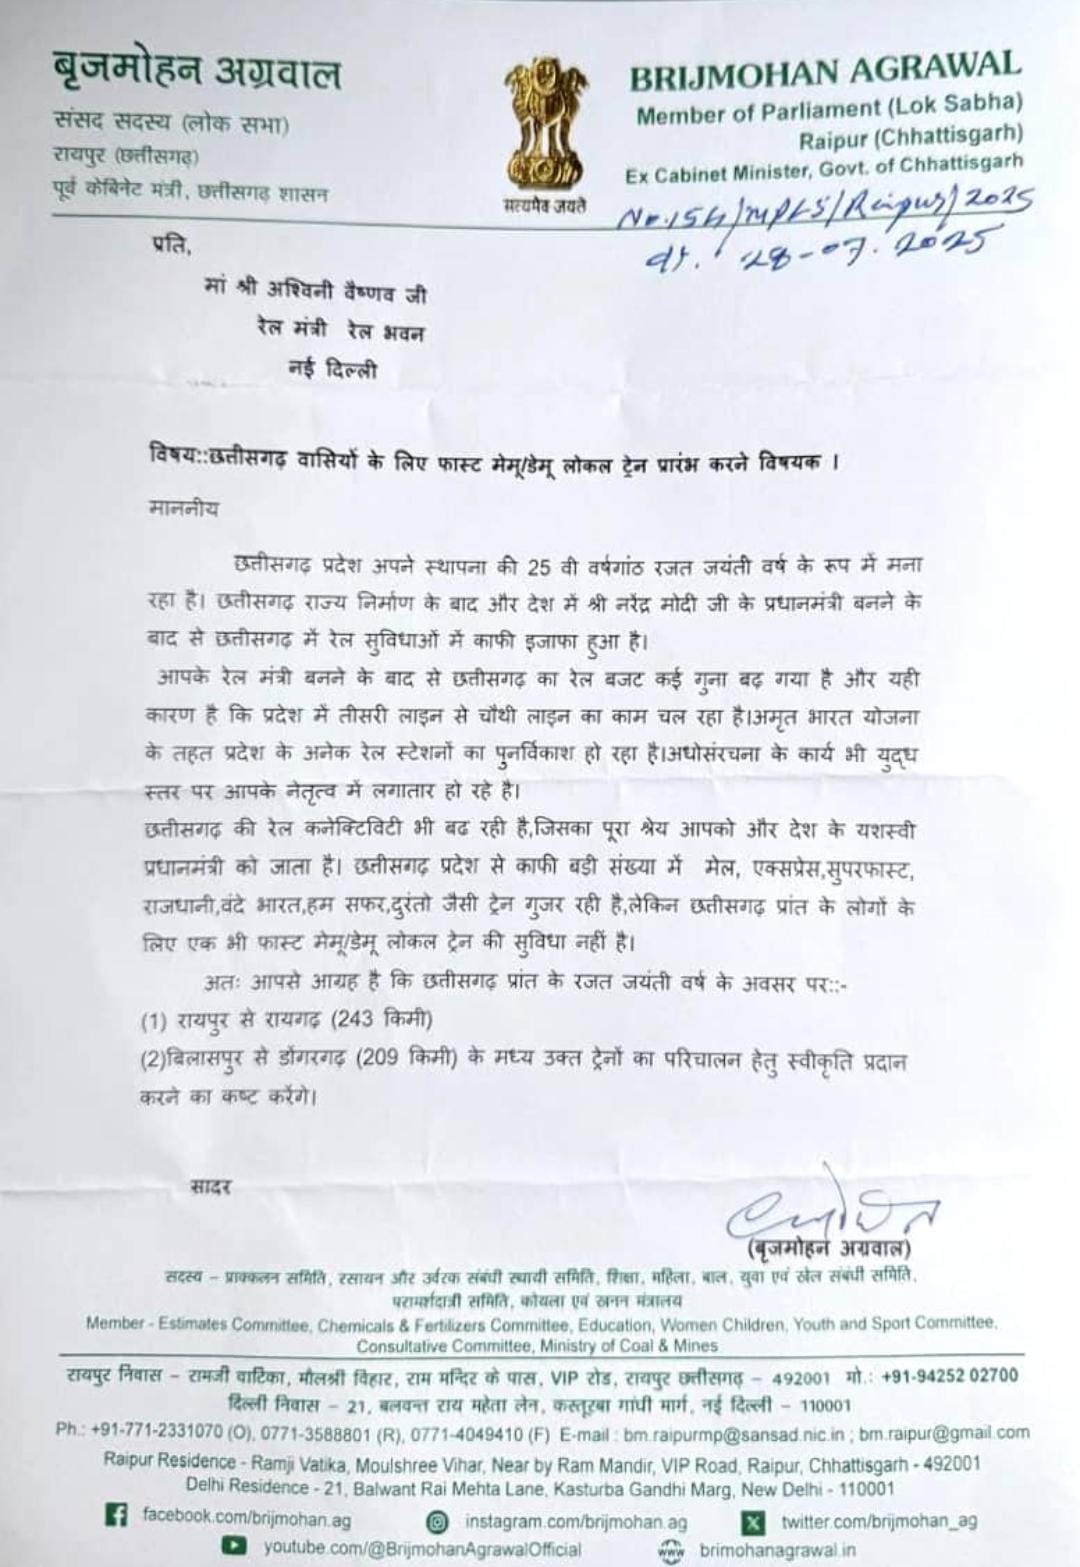 बृजमोहन अग्रवाल
संसद सदस्य (लोक सभा)
रायपुर (छत्तीसगढ़)
पूर्व केबिनेट मंत्री, छत्तीसगढ़ शासन
सत्यमेव जयते
BRIJMOHAN AGRAWAL
Member of Parliament (Lok Sabha)
Raipur (Chhattisgarh)
Ex Cabinet Minister, Govt. of Chhattisgarh
No.154/MPLS/Raipur/2025
dt. 28-07.2025
प्रति,
मां श्री अश्विनी वैष्णव जी
रेल मंत्री रेल भवन
नई दिल्ली
विषय::छत्तीसगढ़ वासियों के लिए फास्ट मेमू/डेमू लोकल ट्रेन प्रारंभ करने विषयक ।
माननीय
छत्तीसगढ़ प्रदेश अपने स्थापना की 25 वी वर्षगांठ रजत जयंती वर्ष के रूप में मना
रहा है। छत्तीसगढ़ राज्य निर्माण के बाद और देश में श्री नरेंद्र मोदी जी के प्रधानमंत्री बनने के
बाद से छत्तीसगढ़ में रेल सुविधाओं में काफी इजाफा हुआ है।
आपके रेल मंत्री बनने के बाद से छत्तीसगढ़ का रेल बजट कई गुना बढ़ गया है और यही
कारण है कि प्रदेश में तीसरी लाइन से चौथी लाइन का काम चल रहा है।अमृत भारत योजना
के तहत प्रदेश के अनेक रेल स्टेशनों का पुनर्विकाश हो रहा है।अधोसंरचना के कार्य भी युद्ध
स्तर पर आपके नेतृत्व में लगातार हो रहे है।
छत्तीसगढ़ की रेल कनेक्टिविटी भी बढ रही है,जिसका पूरा श्रेय आपको और देश के यशस्वी
प्रधानमंत्री को जाता है। छत्तीसगढ़ प्रदेश से काफी बड़ी संख्या में मेल, एक्सप्रेस,सुपरफास्ट,
राजधानी,वंदे भारत,हम सफर,दुरंतो जैसी ट्रेन गुजर रही है,लेकिन छत्तीसगढ़ प्रांत के लोगों के
लिए एक भी फास्ट मेमू/डेमू लोकल ट्रेन की सुविधा नहीं है।
अतः आपसे आग्रह है कि छत्तीसगढ़ प्रांत के रजत जयंती वर्ष के अवसर पर::-
(1) रायपुर से रायगढ़ (243 किमी)
(2)बिलासपुर से डोंगरगढ़ (209 किमी) के मध्य उक्त ट्रेनों का परिचालन हेतु स्वीकृति प्रदान
करने का कष्ट करेंगे।
सादर
(बृजमोहन अग्रवाल)
सदस्य – प्राक्कलन समिति, रसायन और उर्वरक संबंधी स्थायी समिति, शिक्षा, महिला, बाल, युवा एवं खेल संबंधी समिति,
परामर्शदात्री समिति, कोयला एवं खनन मंत्रालय
Member - Estimates Committee, Chemicals & Fertilizers Committee, Education, Women Children, Youth and Sport Committee,
Consultative Committee, Ministry of Coal & Mines
रायपुर निवास – रामजी वाटिका, मौलश्री विहार, राम मन्दिर के पास, VIP रोड, रायपुर छत्तीसगढ़ – 492001 मो.: +91-94252 02700
दिल्ली निवास – 21, बलवन्त राय मेहता लेन, कस्तूरबा गांधी मार्ग, नई दिल्ली – 110001
Ph.: +91-771-2331070 (O), 0771-3588801 (R), 0771-4049410 (F) E-mail : bm.raipurmp@sansad.nic.in ; bm.raipur@gmail.com
Raipur Residence - Ramji Vatika, Moulshree Vihar, Near by Ram Mandir, VIP Road, Raipur, Chhattisgarh - 492001
Delhi Residence - 21, Balwant Rai Mehta Lane, Kasturba Gandhi Marg, New Delhi - 110001
facebook.com/brijmohan.ag instagram.com/brijmohan.ag twitter.com/brijmohan_ag
youtube.com/@BrijmohanAgrawalOfficial brimohanagrawal.in